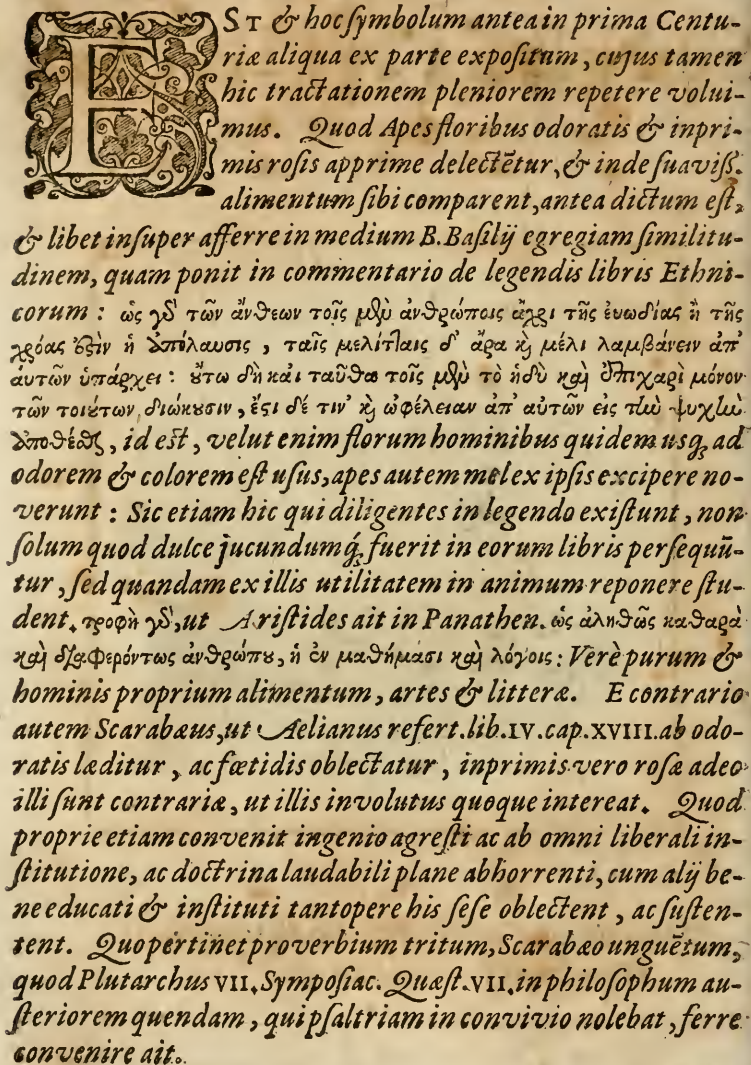 EST & hoc symbolum antea in prima Centu-
riæ aliqua ex parte expositum, cujus tamen
hic tractationem pleniorem repetere volui-
mus. Quod Apes floribus odoratis & inpri-
mis rosis apprime delectētur, & inde suaviss.
alimentum sibi comparent, antea dictum est,
& libet insuper afferre in medium B. Basilij egregiam similitu-
dinem, quam ponit in commentario de legendis libris Ethni-
corum: ὡς γδ τῶν ἄνθεων τοῖς μὲν ἀνθρώποις ἄχρι τῆς ἐυωδίας ἢ τῆς
χρόας ἐςὶν ἡ ἀπόλαυσις, ταῖς μελίτλαις δ' ἄρα κὶ μέλι λαμβάνειν ἀπ'
ἀυτῶν ὑπάρχει: ὅτω δὴ καὶ ταῦθα τοῖς μὲν τὸ ἡδὺ καὶ ἐπιχαρὶ μόνον
τῶν τοιότων, διώκουσιν, ἔςι δέ τιν' κὶ ὠφέλειαν ἀπ' αὐτῶν εἰς τὴν ψυχὴν
ἀποθέσθαι, id est, velut enim florum hominibus quidem usq; ad
odorem & colorem est usus, apes autem mel ex ipsis excipere no-
verunt: Sic etiam hic qui diligentes in legendo existunt, non
solum quod dulce jucundumq́; fuerit in eorum libris persequū-
tur, sed quandam ex illis utilitatem in animum reponere stu-
dent. τροφὴ γδ, ut Aristides ait in Panathen. ὡς ἀληθῶς καθαρὰ
καὶ διαφερόντως ἀνθρώπου, ἡ ἐν μαθήμασι καὶ λόγοις: Verè purum &
hominis proprium alimentum, artes & litteræ. E contrario
autem Scarabæus, ut Aelianus refert. lib. IV. cap. XVIII. ab odo-
ratis læditur, ac fœtidis oblectatur, inprimis vero rosæ adeo
illi sunt contrariæ, ut illis involutus quoque intereat. Quod
proprie etiam convenit ingenio agresti ac ab omni liberali in-
stitutione, ac doctrina laudabili plane abhorrenti, cum alij be-
ne educati & instituti tantopere his sese oblectent, ac susten-
tent. Quo pertinet proverbium tritum, Scarabæo unguētum,
quod Plutarchus VII. Symposiac. Quæst. VII. in philosophum au-
steriorem quendam, qui psaltriam in convivio nolebat, ferre
convenire ait.